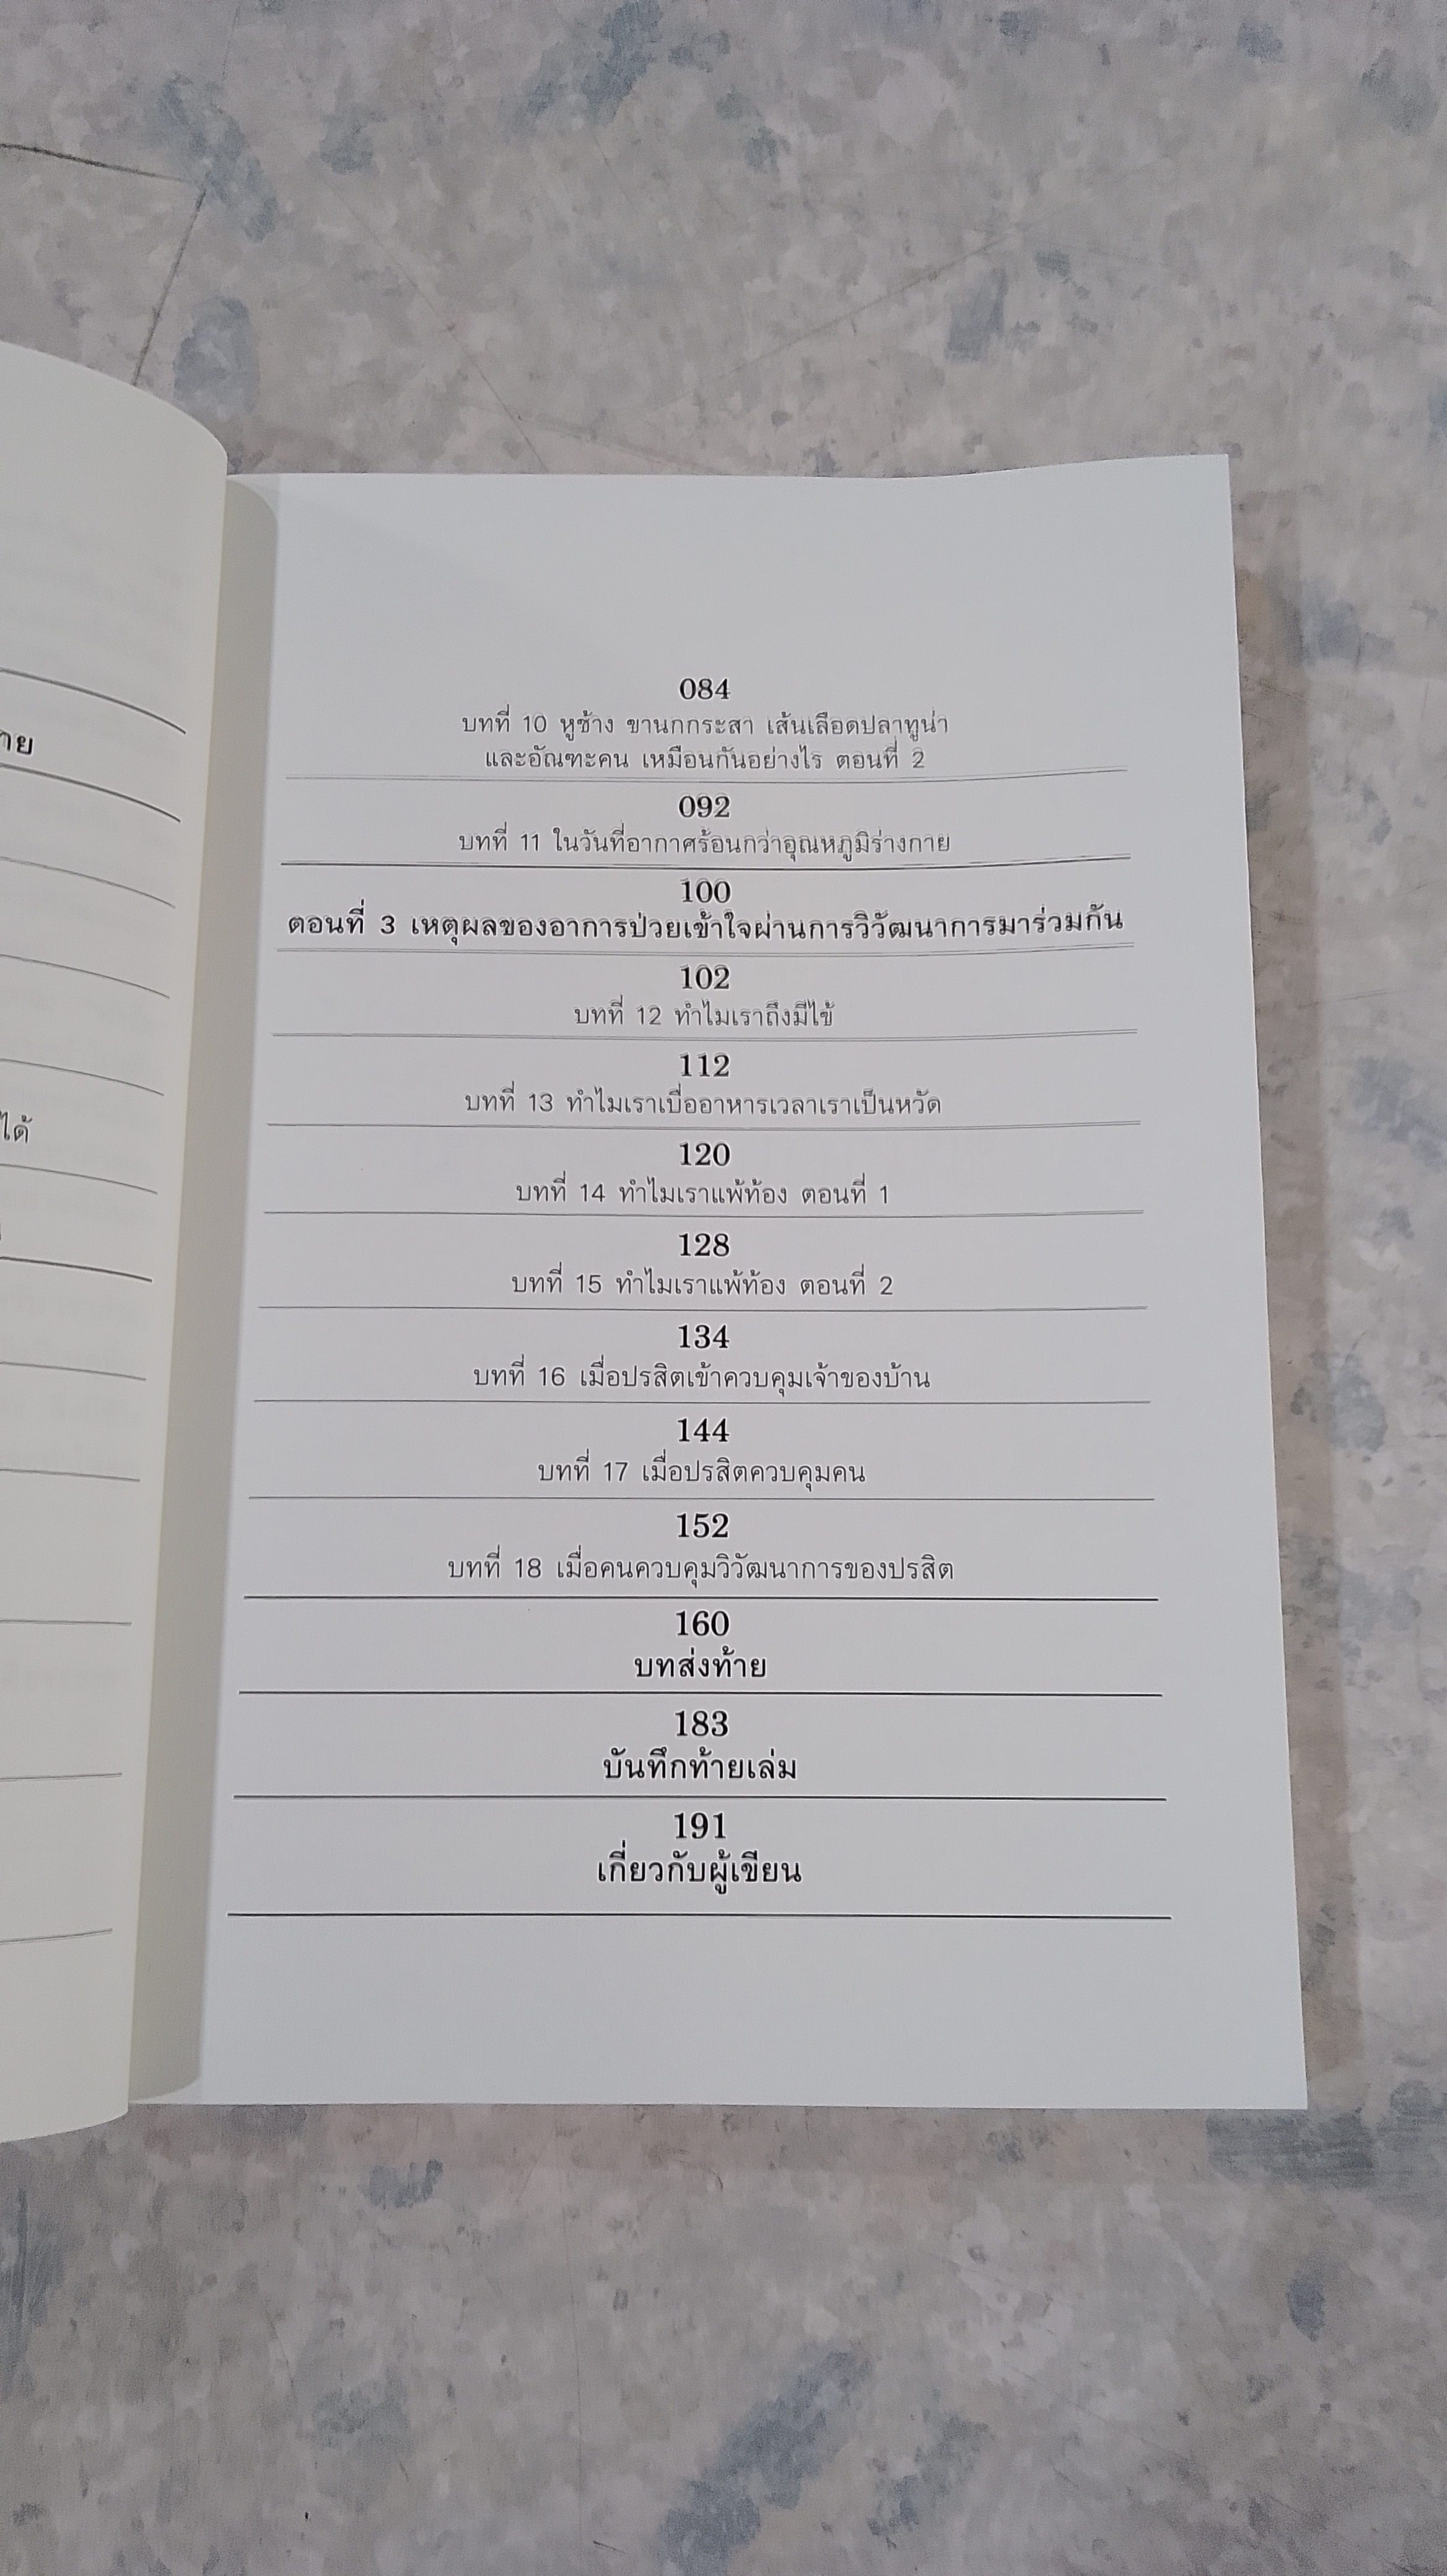 าย
ได้
084
บทที่ 10 หูช้าง ขานกกระสา เส้นเลือดปลาทูน่า
และอัณฑะคน เหมือนกันอย่างไร ตอนที่ 2
092
บทที่ 11 ในวันที่อากาศร้อนกว่าอุณหภูมิร่างกาย
100
ตอนที่ 3 เหตุผลของอาการป่วยเข้าใจผ่านการวิวัฒนาการมาร่วมกัน
102
บทที่ 12 ทำไมเราถึงมีไข้
112
บทที่ 13 ทำไมเราเบื่ออาหารเวลาเราเป็นหวัด
120
บทที่ 14 ทำไมเราแพ้ท้อง ตอนที่ 1
128
บทที่ 15 ทำไมเราแพ้ท้อง ตอนที่ 2
134
บทที่ 16 เมื่อปรสิตเข้าควบคุมเจ้าของบ้าน
144
บทที่ 17 เมื่อปรสิตควบคุมคน
152
บทที่ 18 เมื่อคนควบคุมวิวัฒนาการของปรสิต
160
บทส่งท้าย
183
บันทึกท้ายเล่ม
191
เกี่ยวกับผู้เขียน